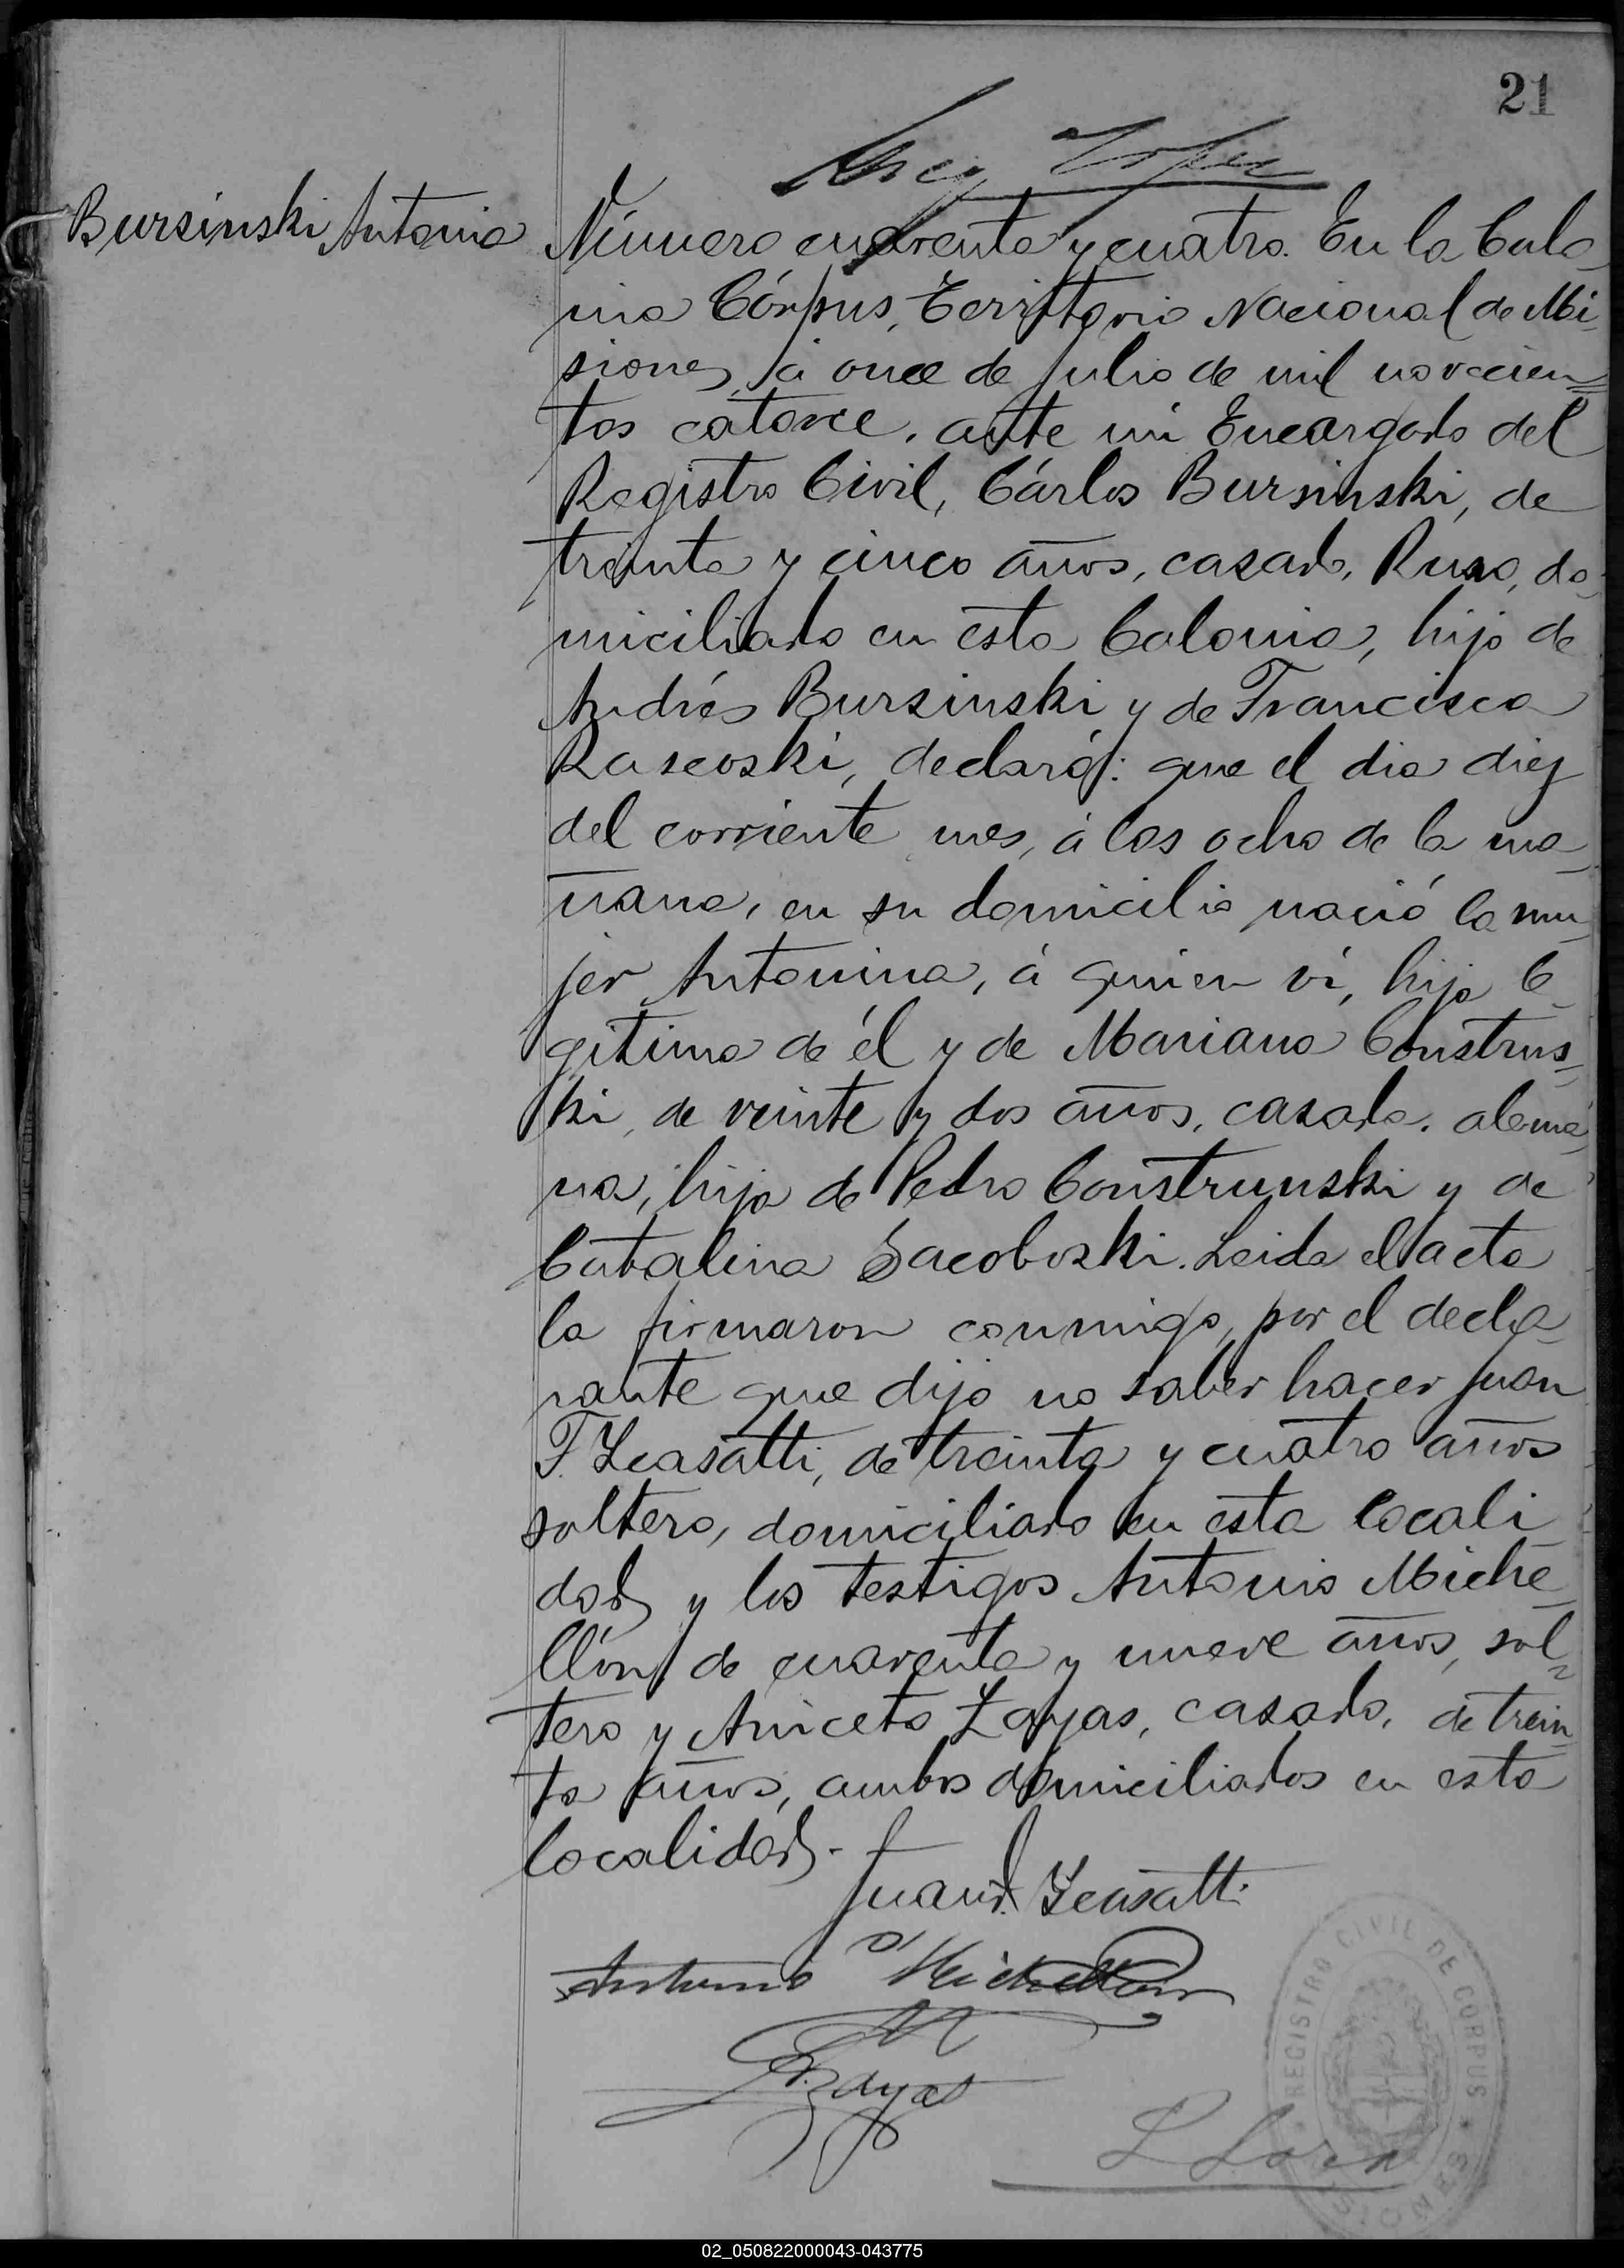 21
Bursinski Antonia
Número cuarenta y cuatro. En la Colo
nia Córpus, Territorio Nacional de Mi
siones, á once de Julio de mil novecien
tos catorce, ante mi Encargado del
Registro Civil, Cárlos Bursinski, de
treinta y cinco años, casado, Ruso, do
miciliado en esta Colonia, hijo de
Andrés Bursinski y de Francisca
Rascoski, declaró: que el dia diez
del corriente mes, á las ocho de la ma
ñana, en su domicilio nació la mu
jer Antonina, á quien ví, hija le
gitima de él y de Mariana Construs
ki, de veinte y dos años, casada, alema
na, hija de Pedro Construnski y de
Catalina Jacoboski. Leida el acta
la firmaron conmigo, por el decla
rante que dijo no saber hacer Juan
F. Leasatti, de treinta y cuatro años
soltero, domiciliado en esta locali
dad y los testigos Antonio Miche
llón de cuarenta y nueve años, sol
tero y Aniceto Zayas, casado, de trein
ta años, ambos domiciliados en esta
localidad.-
Juan F. Leasatti
Antonio Michellón
A. Zayas
REGISTRO CIVIL DE CORPUS
MISIONES
02_050822000043-043775